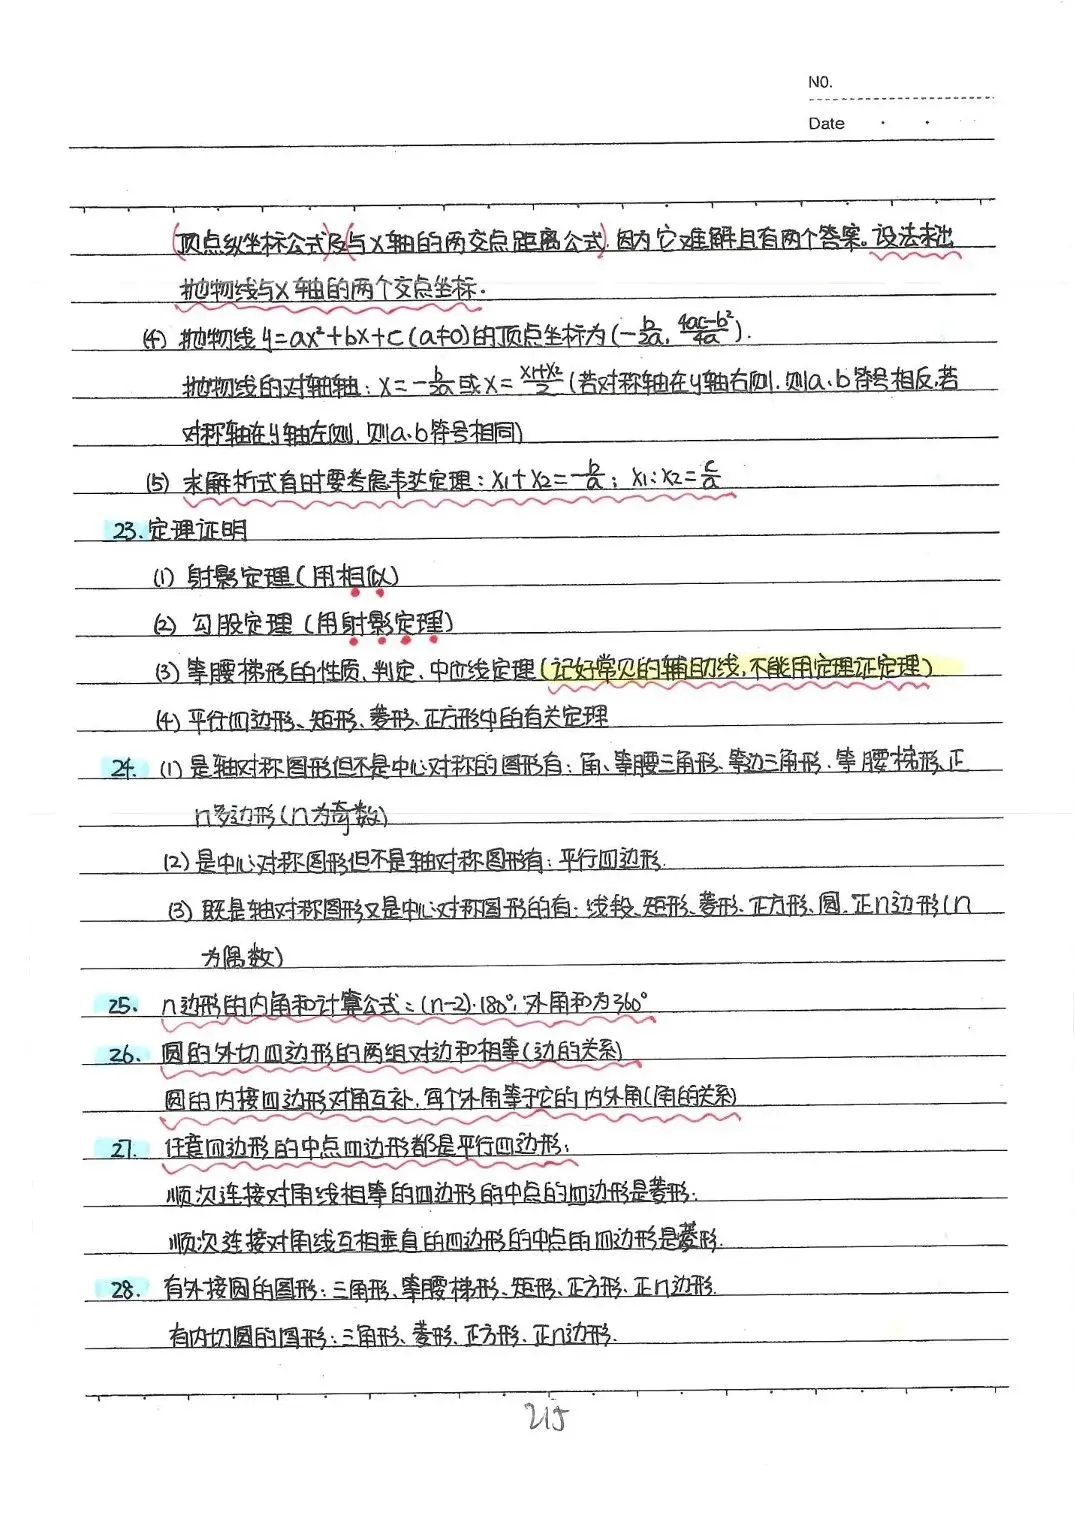 NO.
Date
(顶点纵坐标公式)及(与X轴的两交点距离公式).因为它难解且有两个答案。设法求出
抛物线与X轴的两个交点坐标.
(4) 抛物线y=ax²+bx+c(a≠0)的顶点坐标为(-b/2a, 4ac-b²/4a).
抛物线的对轴轴:X=-b/2a或X=X₁+X₂/2(若对称轴在y轴右侧,则a、b符号相反,若
对称轴在y轴左侧,则a、b符号相同)
(5) 求解析式有时要考虑韦达定理:X₁+X₂=-b/a; X₁:X₂=c/a
23.定理证明
(1) 射影定理(用相似)
(2) 勾股定理(用射影定理)
(3) 等腰梯形的性质、判定、中位线定理(记好常见的辅助线,不能用定理证定理)
(4) 平行四边形、矩形、菱形、正方形中的有关定理
24. (1) 是轴对称图形但不是中心对称的图形有:角、等腰三角形、等边三角形、等腰梯形、正
n多边形(n为奇数)
(2) 是中心对称图形但不是轴对称图形有:平行四边形.
(3) 既是轴对称图形又是中心对称图形的有:线段、矩形、菱形、正方形、圆、正n边形(n
为偶数)
25. n边形的内角和计算公式:(n-2)·180°;外角和为360°
26. 圆的外切四边形的两组对边和相等(边的关系)
圆的内接四边形对角互补,每个外角等于它的内外角(角的关系)
27. 任意四边形的中点四边形都是平行四边形;
顺次连接对角线相等的四边形的中点的四边形是菱形;
顺次连接对角线互相垂直的四边形的中点的四边形是菱形.
28. 有外接圆的图形:三角形、等腰梯形、矩形、正方形、正n边形.
有内切圆的图形:三角形、菱形、正方形、正n边形.
215